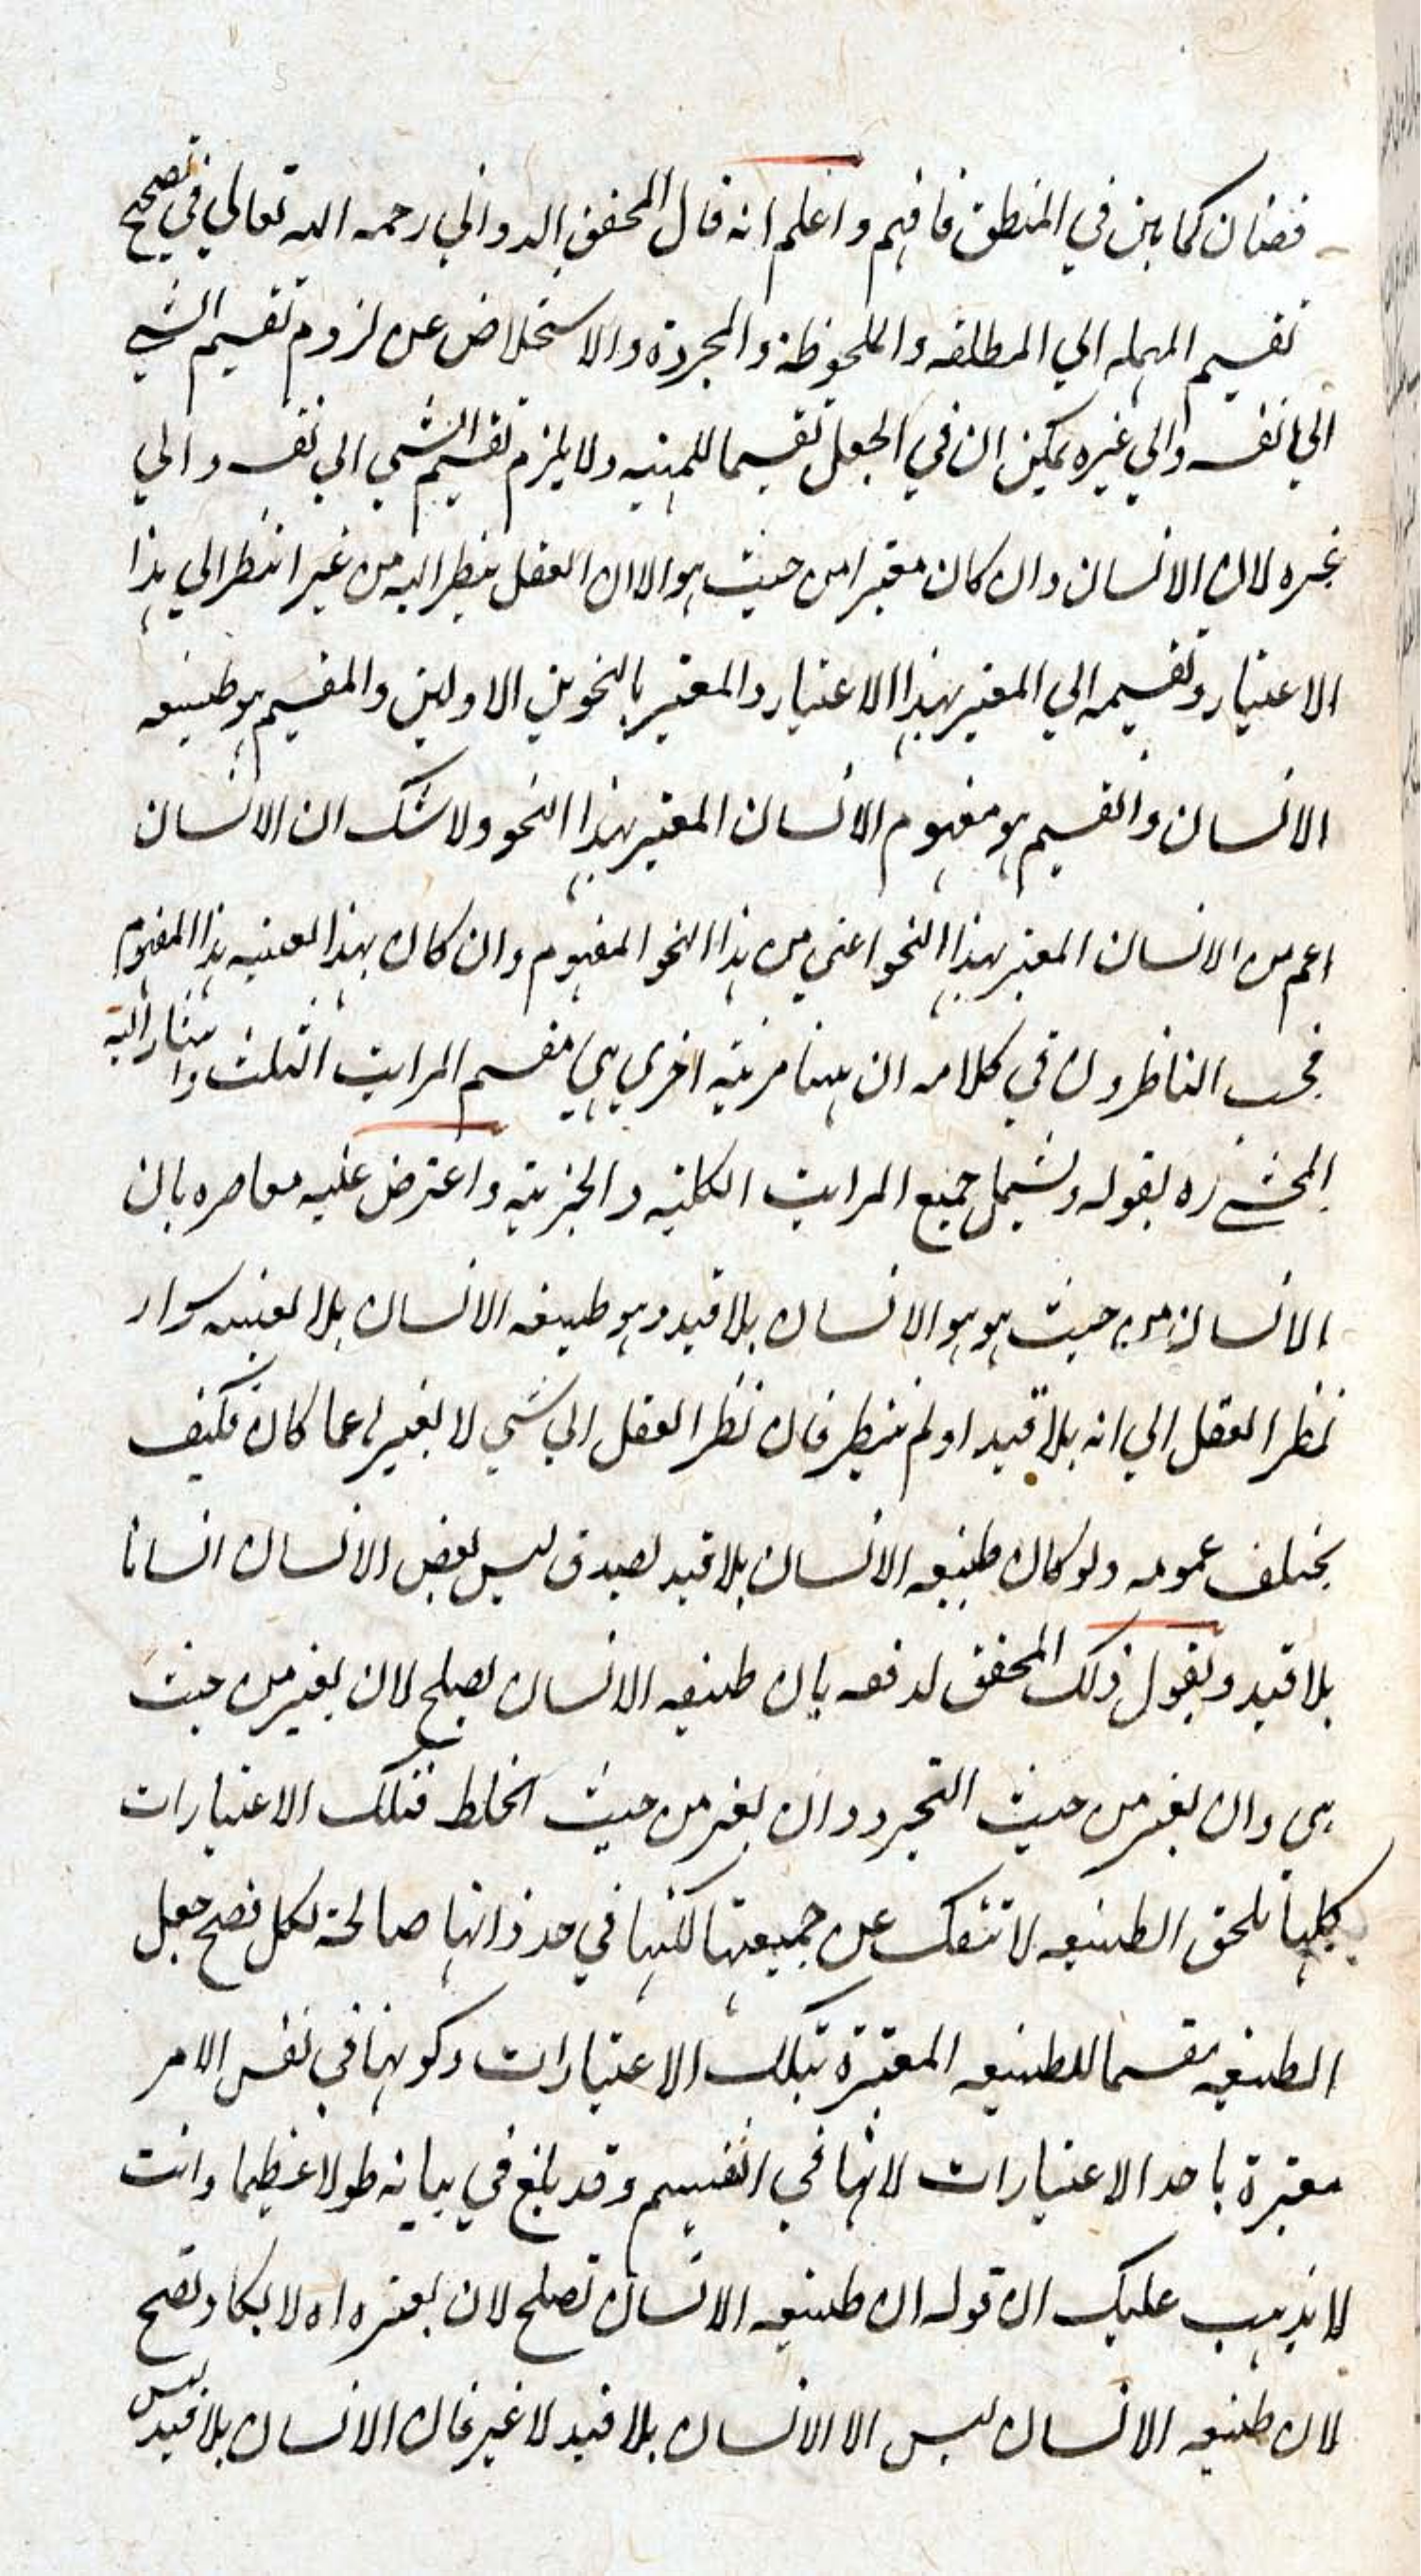 فضتان كما بين في المنطق فافهم واعلم انه قال المحقق الدواني رحمه الله تعالي في تصحيح
تقسيم المهمله الي المطلقه والملحوظة والمجردة والاستخلاص عن لزوم تقسيم الشي
الي نفسه والي غيره يمكن ان في الجعل تقسيما للمهيه ولا يلزم تقسيم الشي الي نفسه والي
غيره لان الانسان وان كان معتبرا من حيث هو الا ان العقل ينظر اليه من غير النظر الي هذا
الاعتبار وتقسيمه الي المعتبر بهذا الاعتبار والمعتبر بالنحوين الاولين والمقسم هو طبيعه
الانسان والقسيم هو مفهوم الانسان المعتبر بهذا النحو ولا شك ان الانسان
اعم من الانسان المعتبر بهذا النحو اعني من هذا النحو المفهوم وان كان بهذا لعينه هذا المفهوم
فحسب الناظرون في كلامه ان ههنا مرتبه اخري هي مقسم المراتب الثلث واشار اليه
المحشي ره بقوله ويشمل جميع المراتب الكليه والجزئيه واعترض عليه معاصره بان
الانسان من حيث هو هو الانسان بلا قيد وهو طبيعه الانسان بلا لعينه سواء
نظر العقل الي انه بلا قيد او لم ينظر فان نظر العقل الي شي لا يغيره عما كان فكيف
يختلف عمومه ولو كان طبيعه الانسان بلا قيد لصدق ليس بعض الانسان انسانا
بلا قيد ويقول ذلك المحقق لدفعه بان طبيعه الانسان يصلح لان يعتبر من حيث
هي وان يعتبر من حيث التجرد وان يعتبر من حيث الخلط فتلك الاعتبارات
كلها تلحق الطبيعه لا تنفك عن جميعها لكنها في حد ذاتها صالحة لكل فصح جعل
الطبيعه مقسما للطبيعه المعتبرة بتلك الاعتبارات وكونها في نفس الامر
معتبرة باحد الاعتبارات لا ينافي التقسيم وقد بلغ في بيانه طولا عظيما وانت
لا يذهب عليك ان قوله ان طبيعه الانسان تصلح لان يعتبر اه لا يكاد يصح
لان طبيعه الانسان ليس الا الانسان بلا قيد لا غير فان الانسان بلا قيد ليس